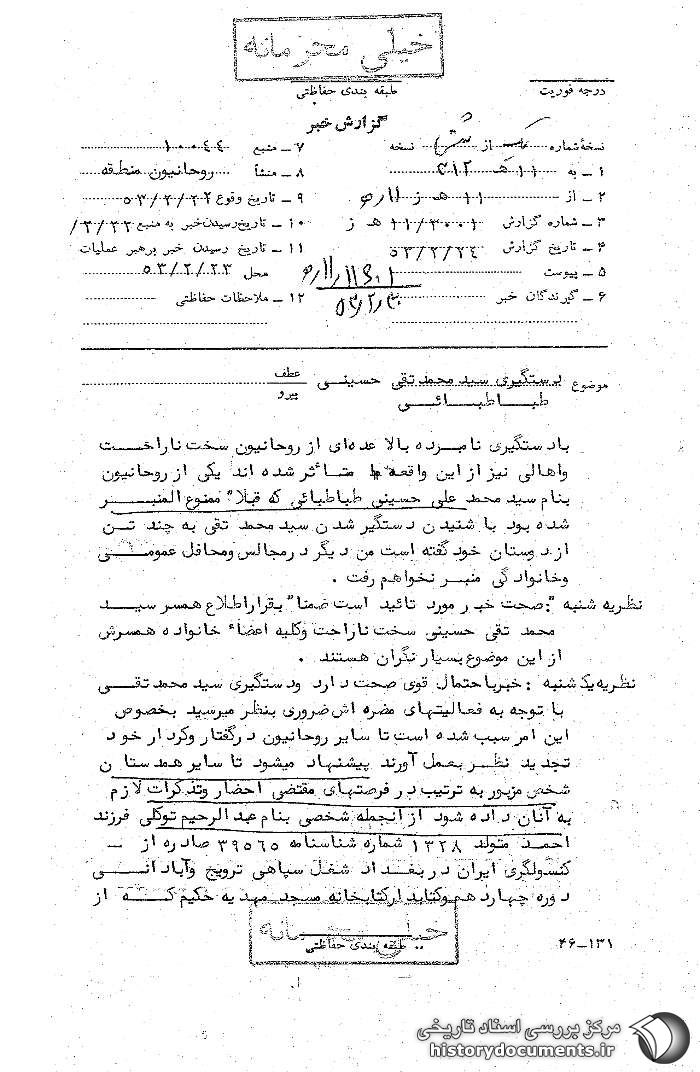 خیلی محرمانه
طبقه بندی حفاظتی
درجه فوریت
گزارش خبر
نسخهٔ شماره یک از نسخه
۱ ـ به ۱۱ هـ ۳۱۲
۲ ـ از ۱۱ هـ ز
۳ ـ شماره گزارش ۱۱/۳۰۰۱ هـ ز
۴ ـ تاریخ گزارش ۵۳/۲/۲۴
۵ ـ پیوست
۶ ـ گیرندگان خبر
۷ ـ منبع ۱۰۰۴۴
۸ ـ منشأ روحانیون منطقه
۹ ـ تاریخ وقوع ۵۳/۲/۲۲
۱۰ ـ تاریخ رسیدن خبر به منبع
۱۱ ـ تاریخ رسیدن خبر برهبر عملیات
محل ۵۳/۲/۲۳
۱۲ ـ ملاحظات حفاظتی
موضوع سید محمد تقی حسینی
طباطبائی
عطف
پیرو
بادستگیری نامبرده بالا عده‌ای از روحانیون سخت ناراحت
واهالی نیز از این واقعه متأثر شده اند یکی از روحانیون
بنام سید محمد علی حسینی طباطبائی که قبلا" ممنوع المنبر
شده بود با شنیدن دستگیر شدن سید محمد تقی به چند تن
از دوستان خود گفته است من دیگر در مجالس ومحافل عمومی
وخانوادگی منبر نخواهم رفت .
نظریه شنبه : صحت خبر مورد تائید است ضمنا" بقرار اطلاع همسر سید
محمد تقی حسینی سخت ناراحت وکلیه اعضاء خانواده همسرش
از این موضوع بسیار نگران هستند .
نظریه یکشنبه : خبر باحتمال قوی صحت دارد ودستگیری سید محمد تقی
با توجه به فعالیتهای مضره اش ضروری بنظر میرسید بخصوص
این امر سبب شده است تا سایر روحانیون در گفتار وکردار خود
تجدید نظر بعمل آورند پیشنهاد میشود تا سایر همدستان
شخص مزبور به ترتیب در فرصتهای مقتضی احضار وتذکرات لازم
به آنان داده شود از انجمله شخصی بنام عبدالرحیم توکلی فرزند
احمد متولد ۱۳۲۸ شماره شناسنامه ۳۹۵۶۵ صادره از
کنسولگری ایران در بغداد شغل سپاهی ترویج وآبادانی
دوره چهاردهم وکتابدار کتابخانه مسجد مهدیه حکیم که از
خیلی محرمانه
طبقه بندی حفاظتی
۴۶-۱۳۱
مرکز بررسی اسناد تاریخی
historydocuments.ir